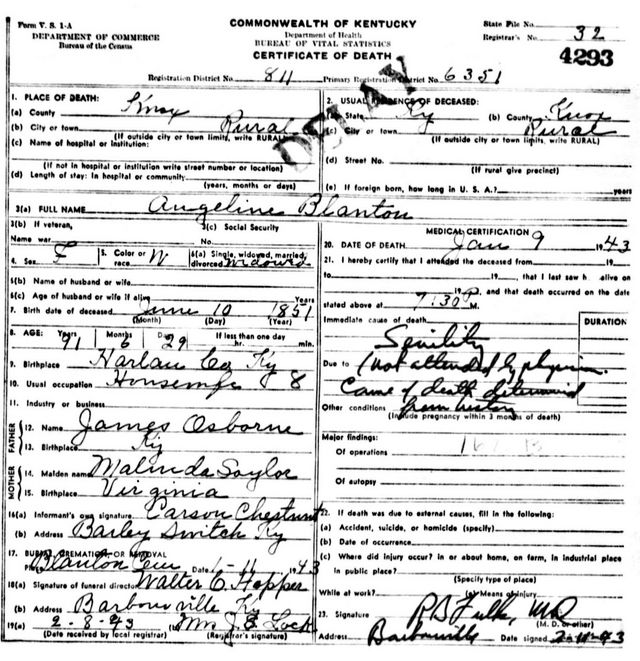 Form V. S. 1-A
DEPARTMENT OF COMMERCE
Bureau of the Census
COMMONWEALTH OF KENTUCKY
Department of Health
BUREAU OF VITAL STATISTICS
CERTIFICATE OF DEATH
State File No.
Registrar's No. 32
4293
Registration District No. 811 Primary Registration District No. 6351
DELAY
1. PLACE OF DEATH:
(a) County Knox
(b) City or town Rural
(If outside city or town limits, write RURAL)
(c) Name of hospital or institution:
(If not in hospital or institution write street number or location)
(d) Length of stay: In hospital or community
(years, months or days)
2. USUAL RESIDENCE OF DECEASED:
(a) State Ky (b) County Knox
(c) City or town Rural
(If outside city or town limits, write RURAL)
(d) Street No.
(If rural give precinct)
(e) If foreign born, how long in U. S. A.? years
3(a) FULL NAME Angeline Blanton
3(b) If veteran,
Name war
3(c) Social Security
No.
4. Sex F 5. Color or race W 6(a) Single, widowed, married, divorced Widowed
6(b) Name of husband or wife
6(c) Age of husband or wife if alive Years
7. Birth date of deceased June 10 1851
(Month) (Day) (Year)
8. AGE: Years Months Days If less than one day
91 6 29 hr. min.
9. Birthplace Harlan Co Ky
10. Usual occupation Housewife 8
11. Industry or business
FATHER
12. Name James Osborne
13. Birthplace Ky
MOTHER
14. Maiden name Malinda Saylor
15. Birthplace Virginia
16(a) Informant's own signature Carson Chestnut
(b) Address Barley Switch Ky
17. BURIAL, CREMATION, OR REMOVAL
Blanton Cem Date 1-11 1943
18(a) Signature of funeral director Walter C. Hopper
(b) Address Barbourville Ky
19(a) 2-8-43 (b) Mrs J. E. Lock
(Date received by local registrar) (Registrar's signature)
MEDICAL CERTIFICATION
20. DATE OF DEATH Jan 9 1943
21. I hereby certify that I attended the deceased from 19
to 19 , that I last saw h alive on
19 , and that death occurred on the date
stated above at 7:30 P M.
Immediate cause of death DURATION
Senility
Due to (not attended by physician.
Cause of death determined
Other conditions from history
(Include pregnancy within 3 months of death)
Major findings:
Of operations
Of autopsy
22. If death was due to external causes, fill in the following:
(a) Accident, suicide, or homicide (specify)
(b) Date of occurrence
(c) Where did injury occur? in or about home, on farm, in industrial place
in public place?
(Specify type of place)
While at work? (e) Means of injury
23. Signature MD
(M. D. or other)
Address Barbourville Date signed